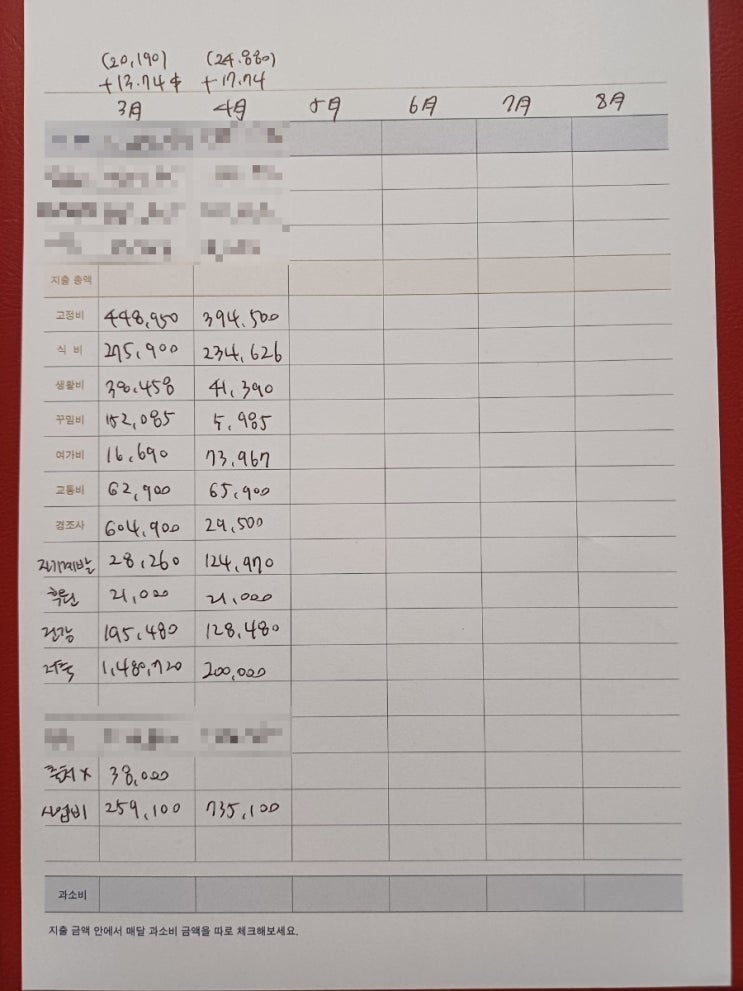 (20,190) (24.880)
+13.74 $ +17.74
3月 4月 5月 6月 7月 8月
지출 총액
고정비 448,950 394.500
식 비 275,900 234,626
생활비 38,458 41,390
꾸밈비 152,085 5,985
여가비 16,690 73,967
교통비 62,900 65,900
경조사 604,900 29,500
자기계발 28,260 124,970
후원 21,000 21,000
건강 195,480 128,480
저축 1,480,720 200,000
출처 X 38,000
사업비 259,100 735,100
과소비
지출 금액 안에서 매달 과소비 금액을 따로 체크해보세요.